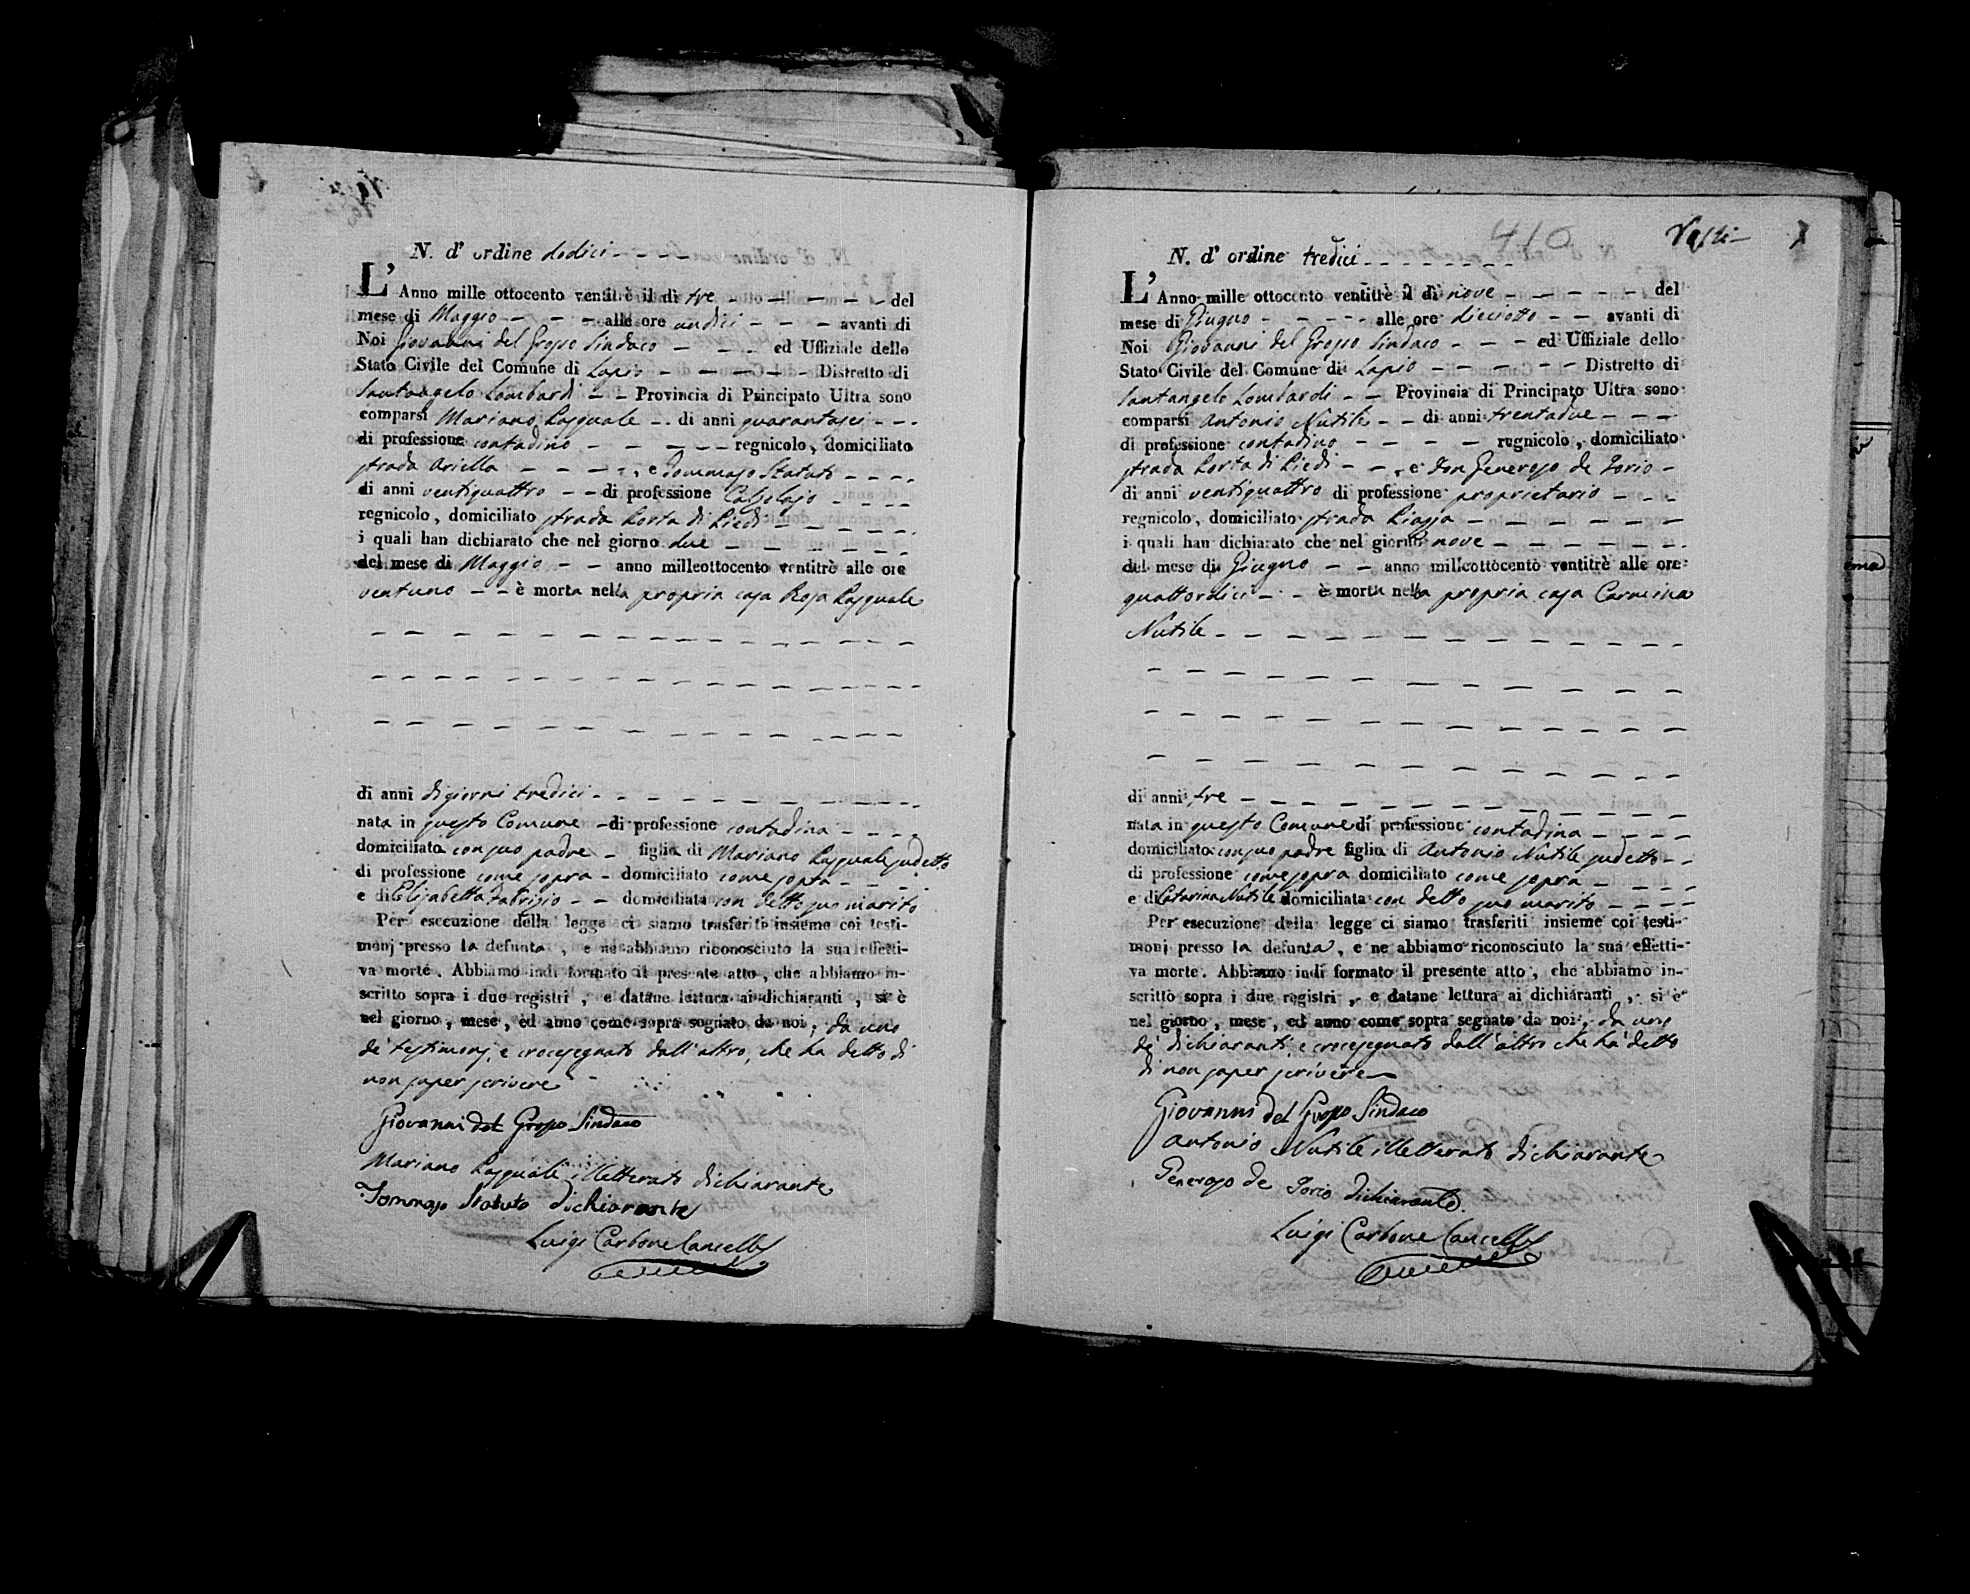 N. d' ordine dodici
L' Anno mille ottocento ventitrè il dì tre - - - - - del
mese di Maggio - - - alle ore undici - - - avanti di
Noi Giovanni del Grosso Sindaco - - - ed Uffiziale dello
Stato Civile del Comune di Lapio - - - - - Distretto di
Santangelo Lombardi - - Provincia di Principato Ultra sono
comparsi Mariano Pasquale - . di anni quarantasei - - -
di professione contadino - - - - - regnicolo, domiciliato
strada Ariella - - - - -, e Tommaso Statuto - - - -
di anni ventiquattro - - di professione Calzolajo - - - -
regnicolo, domiciliato strada Porta di Piedi - - - - - -
i quali han dichiarato che nel giorno due - - - - - - -
del mese di Maggio - - anno milleottocento ventitrè alle ore
ventuno - - è morta nella propria casa Rosa Pasquale
di anni di giorni tredici - - - - - - - - - -
nata in questo Comune - di professione contadina - - - -
domiciliata con suo padre - figlia di Mariano Pasquale sudetto
di professione come sopra - domiciliato come sopra - - - -
e di Elisabetta Fabrizio - - domiciliata con detto suo marito
Per esecuzione della legge ci siamo trasferiti insieme coi testi-
monj presso la defunta, e ne abbiamo riconosciuto la sua effetti-
va morte. Abbiamo indi formato il presente atto, che abbiamo in-
scritto sopra i due registri, e datane lettura ai dichiaranti, si è
nel giorno, mese, ed anno come sopra segnato da noi, da uno
de' testimonj, e crocesegnato dall'altro, che ha detto di
non saper scrivere
Giovanni del Grosso Sindaco
Mariano Pasquale illetterato dichiarante
Tommaso Statuto dichiarante
Luigi Carbone Cancell.
410
N. d' ordine tredici - - - - - - - -
L' Anno mille ottocento ventitrè il dì nove - - - - - del
mese di Giugno - - - - - alle ore dieciotto - - avanti di
Noi Giovanni del Grosso Sindaco - - - ed Uffiziale dello
Stato Civile del Comune di Lapio - - - - - Distretto di
Santangelo Lombardi - - Provincia di Principato Ultra sono
comparsi Antonio Nutile - - di anni trentadue - - - -
di professione contadino - - - - regnicolo, domiciliato
strada Porta di Piedi - - , e Don Generoso de Iorio -
di anni ventiquattro di professione proprietario - - -
regnicolo, domiciliato strada Piazza - - - - - -
i quali han dichiarato che nel giorno nove - - - - - -
del mese di Giugno - - anno milleottocento ventitrè alle ore
quattordici - - è morta nella propria casa Carmina
Nutile - - - - - - - - - - - - -
di anni tre - - - - - - - - - - -
nata in questo Comune di professione contadina - - - -
domiciliata con suo padre figlia di Antonio Nutile sudetto - -
di professione come sopra domiciliato come sopra - - - -
e di Catarina Nutile domiciliata con detto suo marito - - - -
Per esecuzione della legge ci siamo trasferiti insieme coi testi-
monj presso la defunta, e ne abbiamo riconosciuto la sua effetti-
va morte. Abbiamo indi formato il presente atto, che abbiamo in-
scritto sopra i due registri, e datane lettura ai dichiaranti, si è
nel giorno, mese, ed anno come sopra segnato da noi, da uno
de' dichiaranti, e crocesegnato dall'altro che ha detto
di non saper scrivere
Giovanni del Grosso Sindaco
Antonio Nutile illetterato dichiarante
Generoso de Iorio dichiarante
Luigi Carbone Cancell.